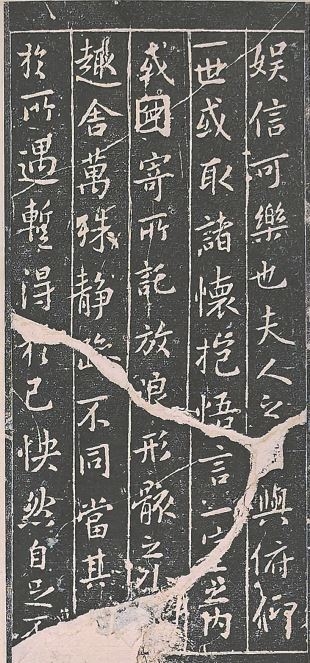 娛信可樂也夫人之與俯仰
一世或取諸懷抱悟言一室之内
或因寄所託放浪形骸之外
趣舍萬殊静躁不同當其
於所遇暫得於己快然自足不